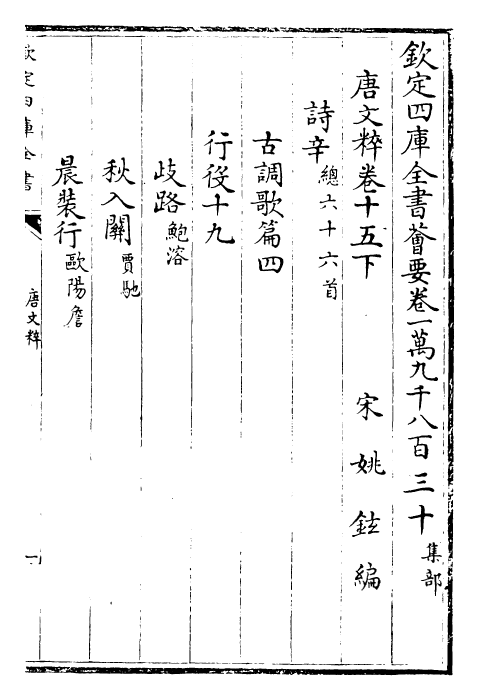 欽定四庫全書薈要卷一萬九千八百三十集部
唐文粹卷十五下 宋 姚鉉編
詩辛總六十六首
古調歌篇四
行役十九
歧路鮑溶
秋入關賈馳
晨裝行歐陽詹
欽定四庫全書
唐文粹
一